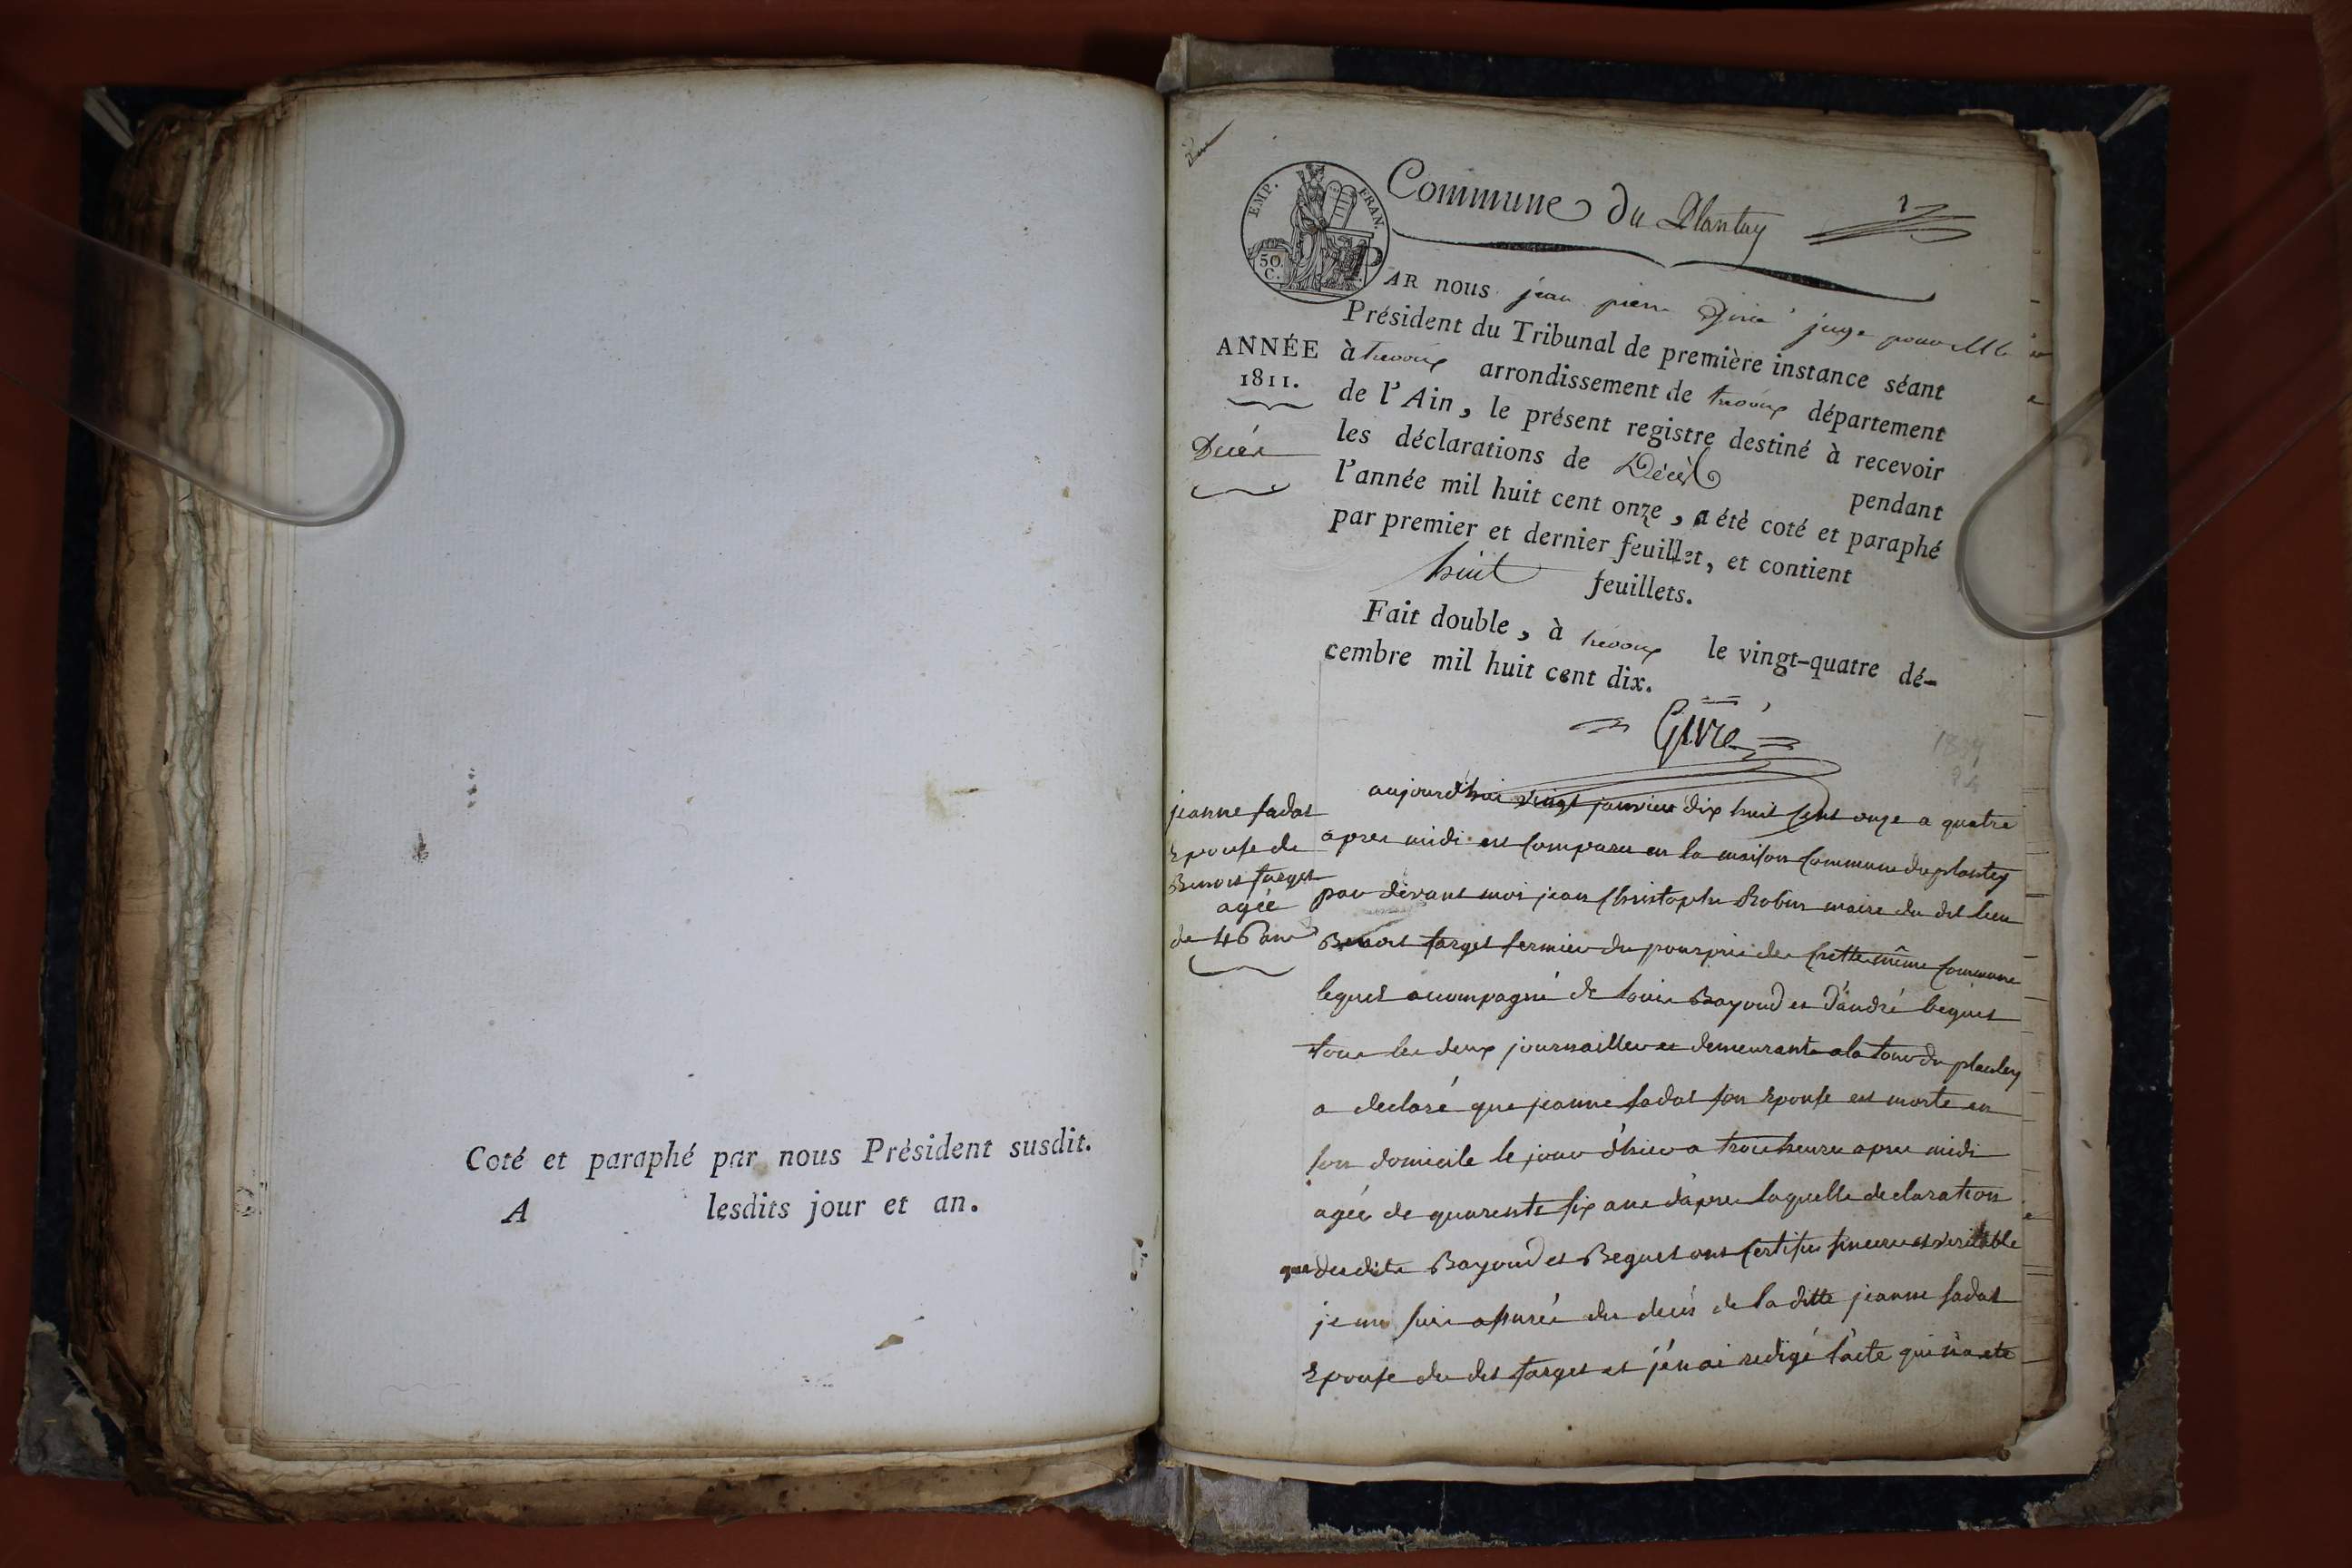 Coté et paraphé par nous Président susdit.
A lesdits jour et an.
Commune du Plantay
EMP. FRAN.
50 C.
AR nous jean pierre Givré juge pour M le
Président du Tribunal de première instance séant
ANNÉE
1811.
Décés
à trevoux arrondissement de trevoux département
de l'Ain, le présent registre destiné à recevoir
les déclarations de Décès pendant
l'année mil huit cent onze, a été coté et paraphé
par premier et dernier feuillet, et contient
huit feuillets.
Fait double, à trevoux le vingt-quatre dé-
cembre mil huit cent dix.
Givré
jeanne fadat
Epouse de
Benoit farget
agée
de 46 ans
aujourd'hui vingt janvier dix huit cent onze a quatre
apres midi est comparu en la maison commune du plantey
par devant moi jean christophe Robin maire du dit lieu
Benoit farget fermier du pourprix de cette même commune
lequel accompagné de louis Bayoud et d'andré bequet
tous les deux journaillers et demeurants a la tour du plantey
a declaré que jeanne fadat son Epouse est morte en
son domicile le jour d'hier a trois heures apres midi
agée de quarente six ans d'apres laquelle declaration
que desdits Bayoud et Bequet ont certifié sincere et veritable
je me suis assuré du decés de la ditte jeanne fadat
Epouse du dit farget et j'en ai redigé l'acte qui n'a eté